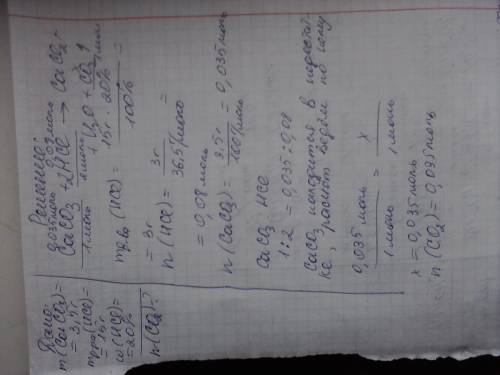 Дано:
m(CaCO3)=
= 3,5г
mр-ра(HCl)=
= 15г
ω(HCl)=
=20%
n(CO2)-?
Решение:
0,035моль 0,08моль
CaCO3 + 2HCl → CaCl2 +
1моль 2моль
x
+ H2O + CO2↑
1моль
mр.в.(HCl) = 15г · 20% / 100% =
= 3г
n(HCl) = 3г / 36,5г/моль =
= 0,08 моль
n(CaCO3) = 3,5г / 100г/моль = 0,035моль
CaCO3 : HCl
1:2 = 0,035:0,08
CaCO3 находится в недостат-
ке, расчёт ведём по нему
0,035моль / 1 моль = x / 1 моль
x = 0,035моль
n (CO2) = 0,035моль